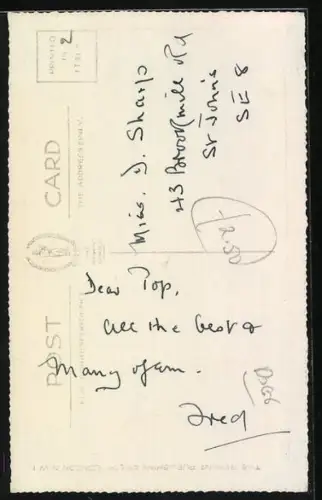 POST CARD
THE ADDRESS ONLY
PRINTED
IN
2
Miss. D. Sharp
43 Brookmill Rd
St John's
SE 8
/2.50
Dear Top,
All the best &
Many of em.
Fred